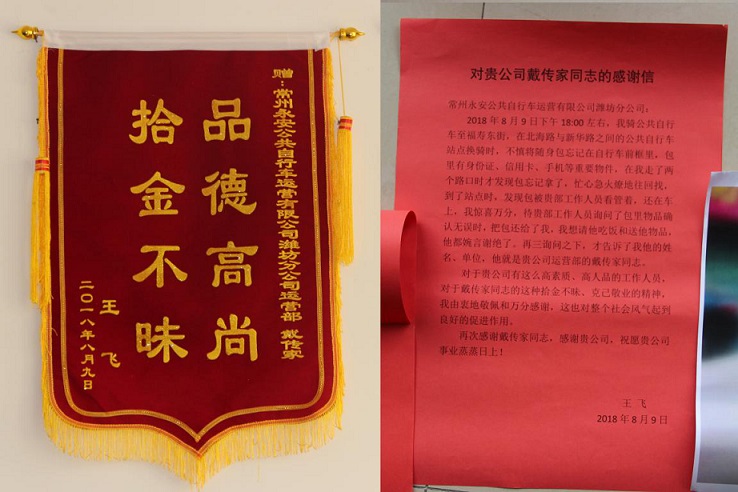 赠：常州永安公共自行车运营有限公司潍坊分公司运营部 戴传家
品德高尚
拾金不昧
王飞
二〇一八年八月九日
对贵公司戴传家同志的感谢信
常州永安公共自行车运营有限公司潍坊分公司：
2018年8月9日下午18:00左右，我骑公共自行
车至福寿东街，在北海路与新华路之间的公共自行车
站点换骑时，不慎将随身包忘记在自行车前框里，包
里有身份证、信用卡、手机等重要物件，在我走了两
个路口时才发现包忘记拿了，忙心急火燎地往回找，
到了站点时，发现包被贵部工作人员看管着，还在车
上，我惊喜万分，待贵部工作人员询问了包里物品确
认无误时，把包还给了我，我想请他吃饭和送他物品，
他都婉言谢绝了。再三询问之下，才告诉了我他的姓
名、单位，他就是贵公司运营部的戴传家同志。
对于贵公司有这么高素质、高人品的工作人员，
对于戴传家同志的这种拾金不昧、克己敬业的精神，
我由衷地敬佩和万分感谢，这也对整个社会风气起到
良好的促进作用。
再次感谢戴传家同志，感谢贵公司、祝愿贵公司
事业蒸蒸日上！
王飞
2018年8月9日